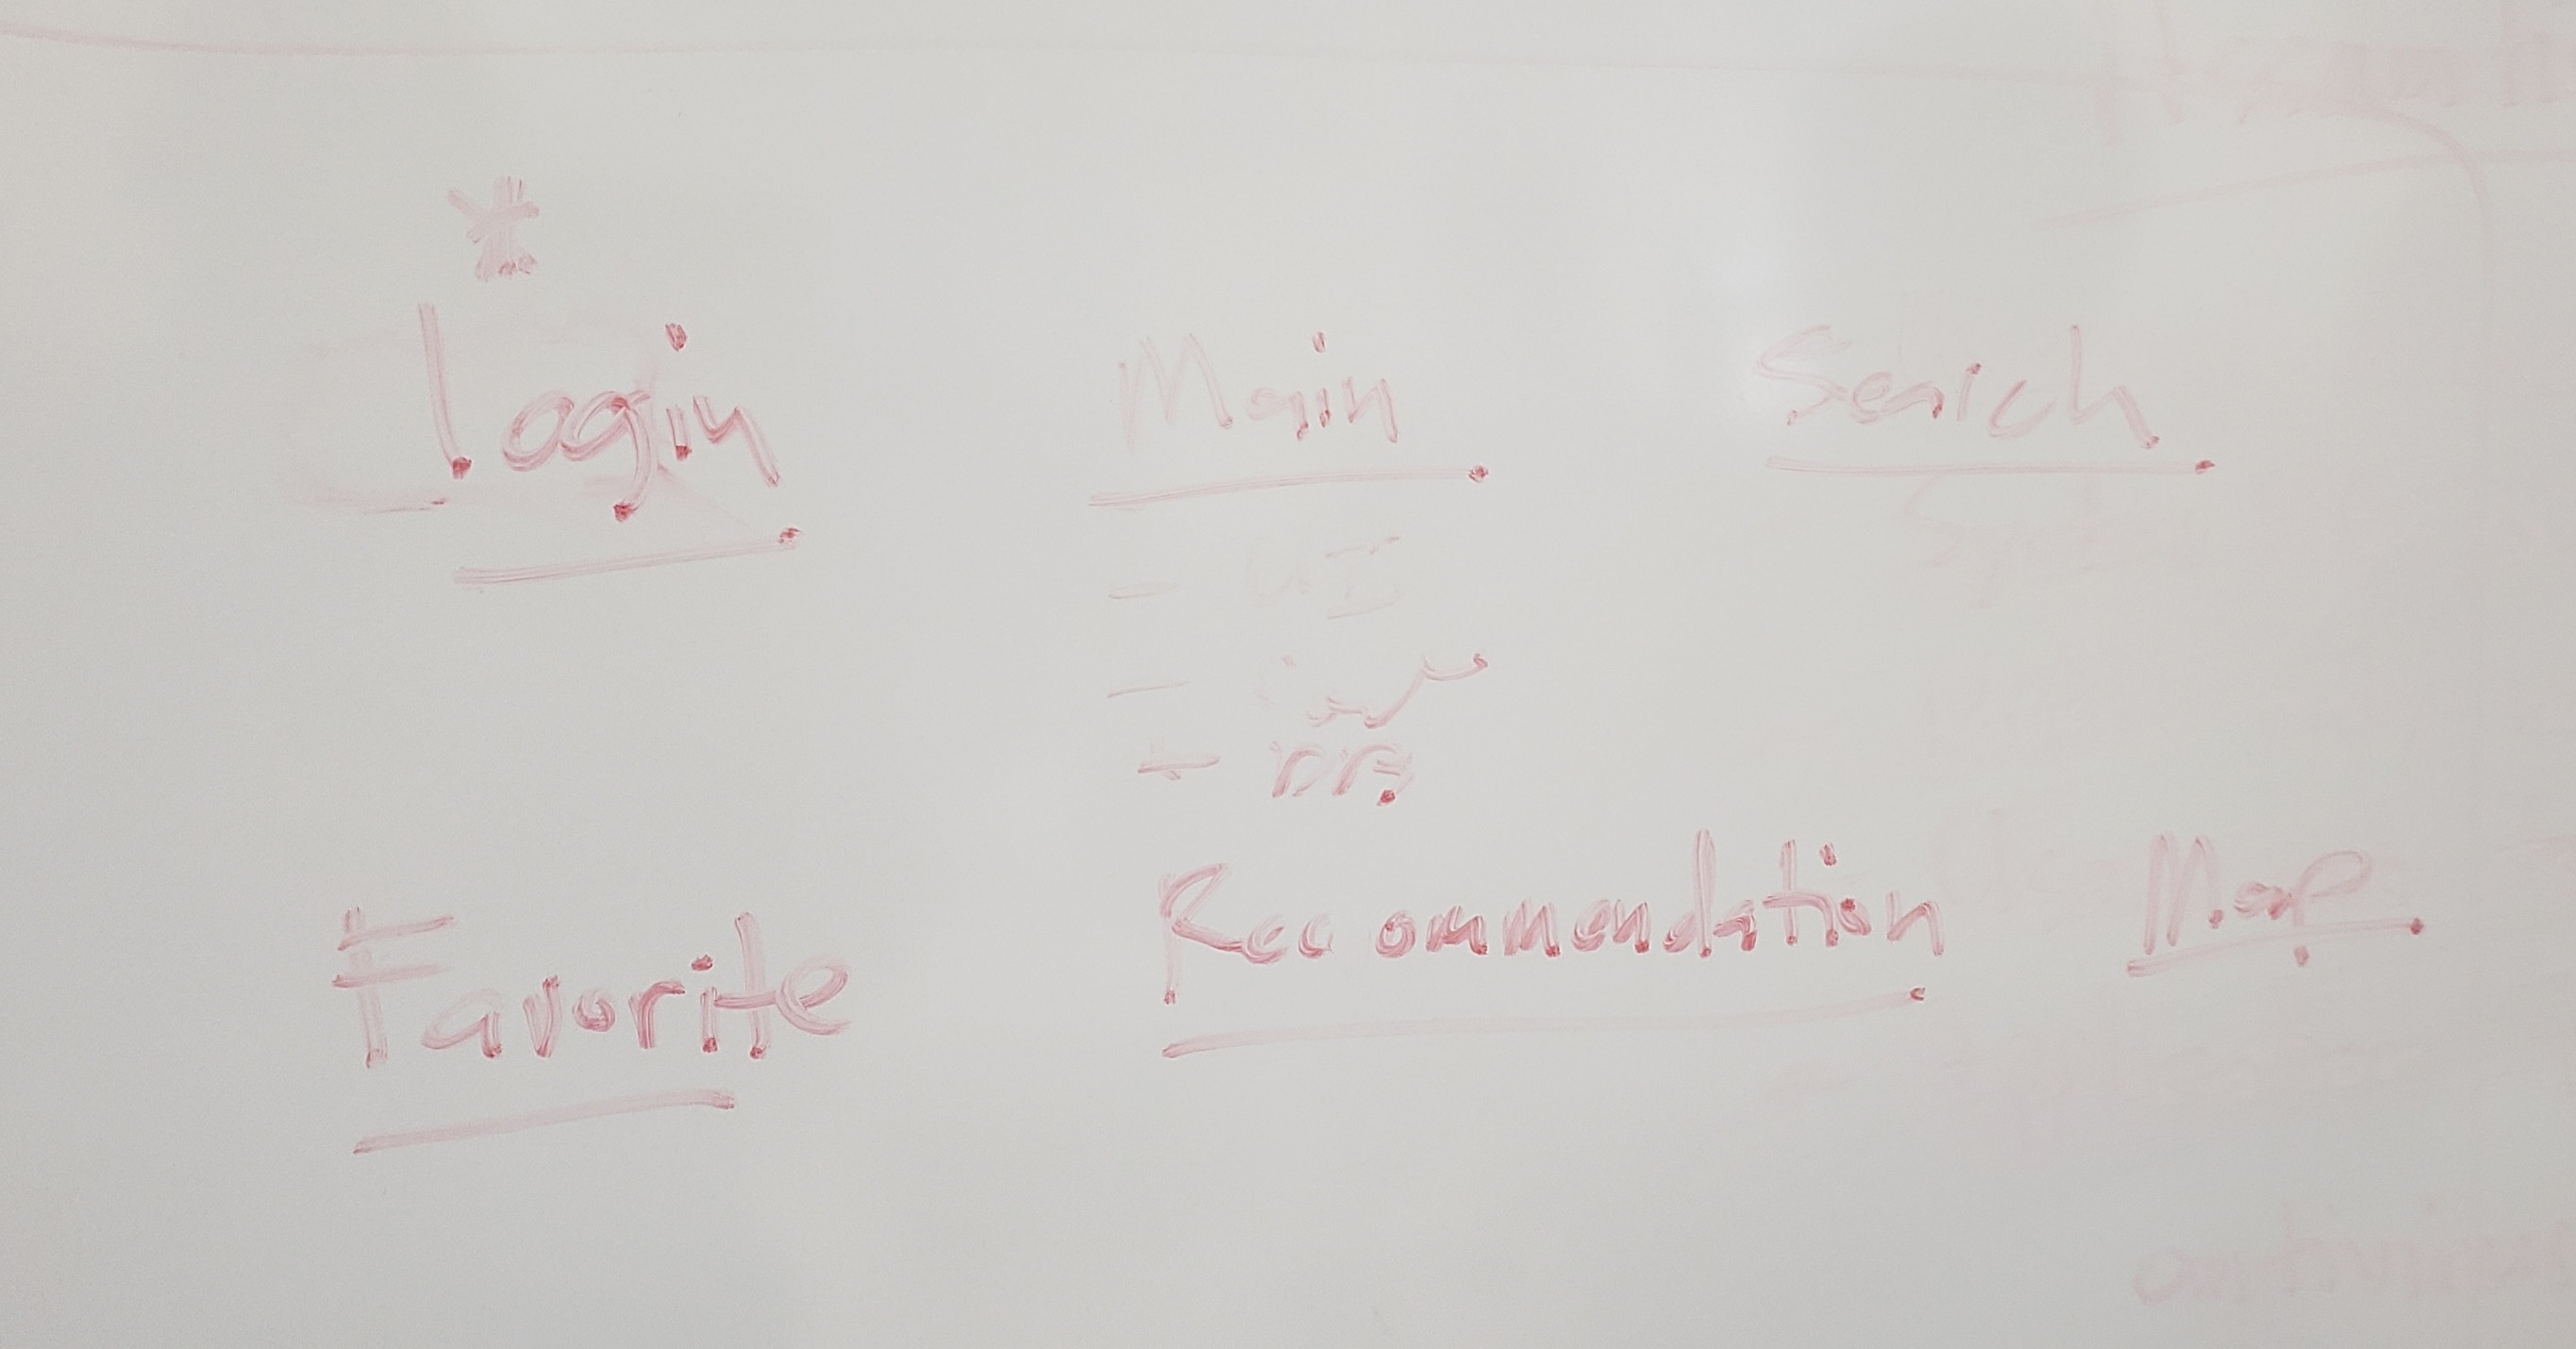 *
Login
Main
Search
- UI
-
+ DB
Favorite
Recommendation
Map